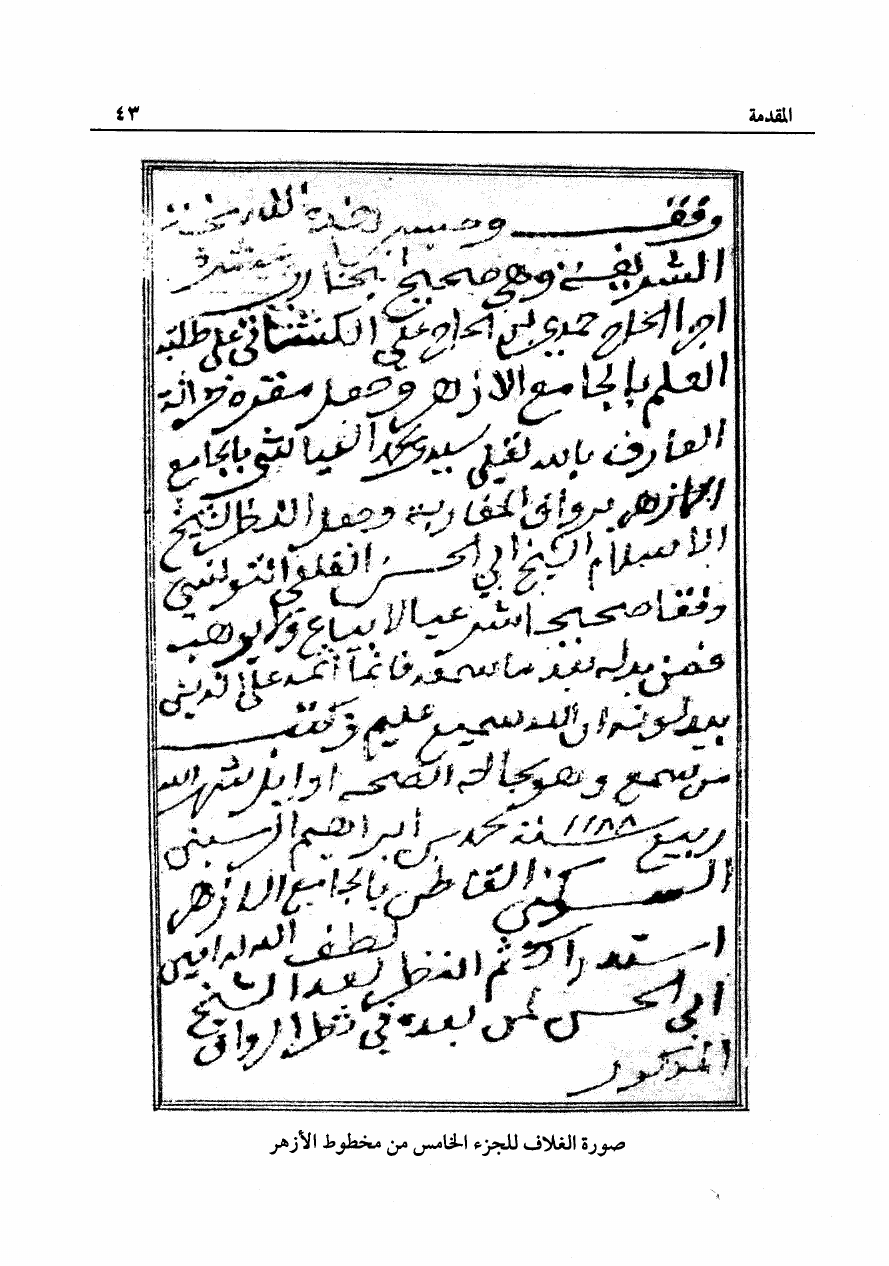 المقدمة ٤٣
وقف وحبس هذه النسخة
الشريفة وهي صحيح البخاري عشرة
اجزا الحاج حمدي بن الحاج علي على طلبة
العلم بالجامع الازهر وجعل مقره خزانة
العارف بالله تعالى سيدي محمد بالجامع
الازهر برواق المغاربة وجعل النظر للشيخ
الاسلام الشيخ ابي الحسن القلعي التونسي
وقفا صحيحا شرعيا لا يباع ولا يوهب
فمن بدله بعد ما سمعه فانما اثمه على الذين
يبدلونه ان الله سميع عليم وكتب
من سمع وهو بحالة الصحة اوايل شهر الله
ربيع سنة ١١٨٨ محمد بن ابراهيم
القاطن بالجامع الازهر
لطف الله به امين
استدراك ثم النظر بعد الشيخ
ابي الحسن لمن بعده في نظر الرواق
المذكور
صورة الغلاف للجزء الخامس من مخطوط الأزهر